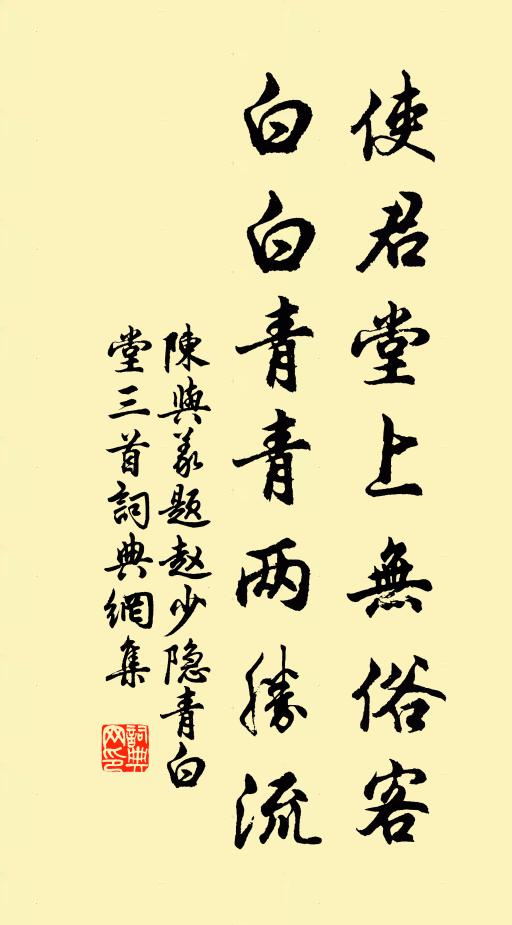 使君堂上無俗客
白白青青两勝流
陳與義题赵少隐青白
堂三首詞典網集
詞典
网印